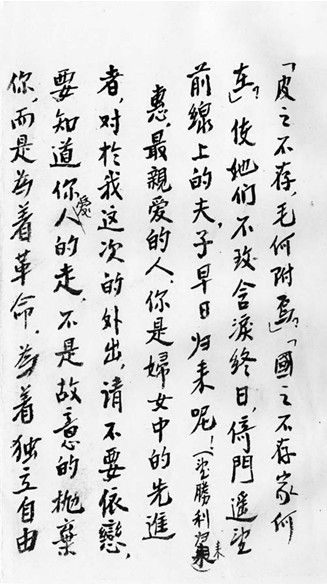 「皮之不存，毛何附焉？」「國之不存家何
在」？使她们不致含淚終日，倚門遥望
前線上的夫，子早日归来呢！（望勝利归来
惠，最親爱的人，你是婦女中的先進
者，对於我这次的外出，請不要依戀，
要知道你爱人的走，不是故意的抛棄
你，而是為着革命，為着独立自由